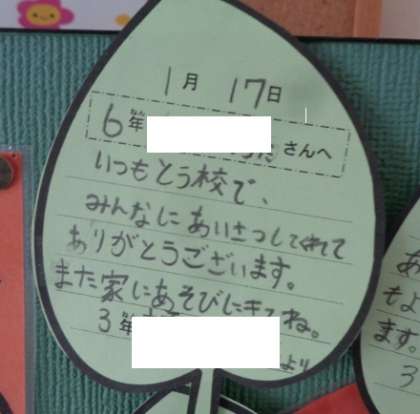 1月 17日
6年 さんへ
いつもとう校で、
みんなにあいさつしてくれて
ありがとうございます。
また家にあそびにきてね。
3年
より
あ
もよ
ます。
3